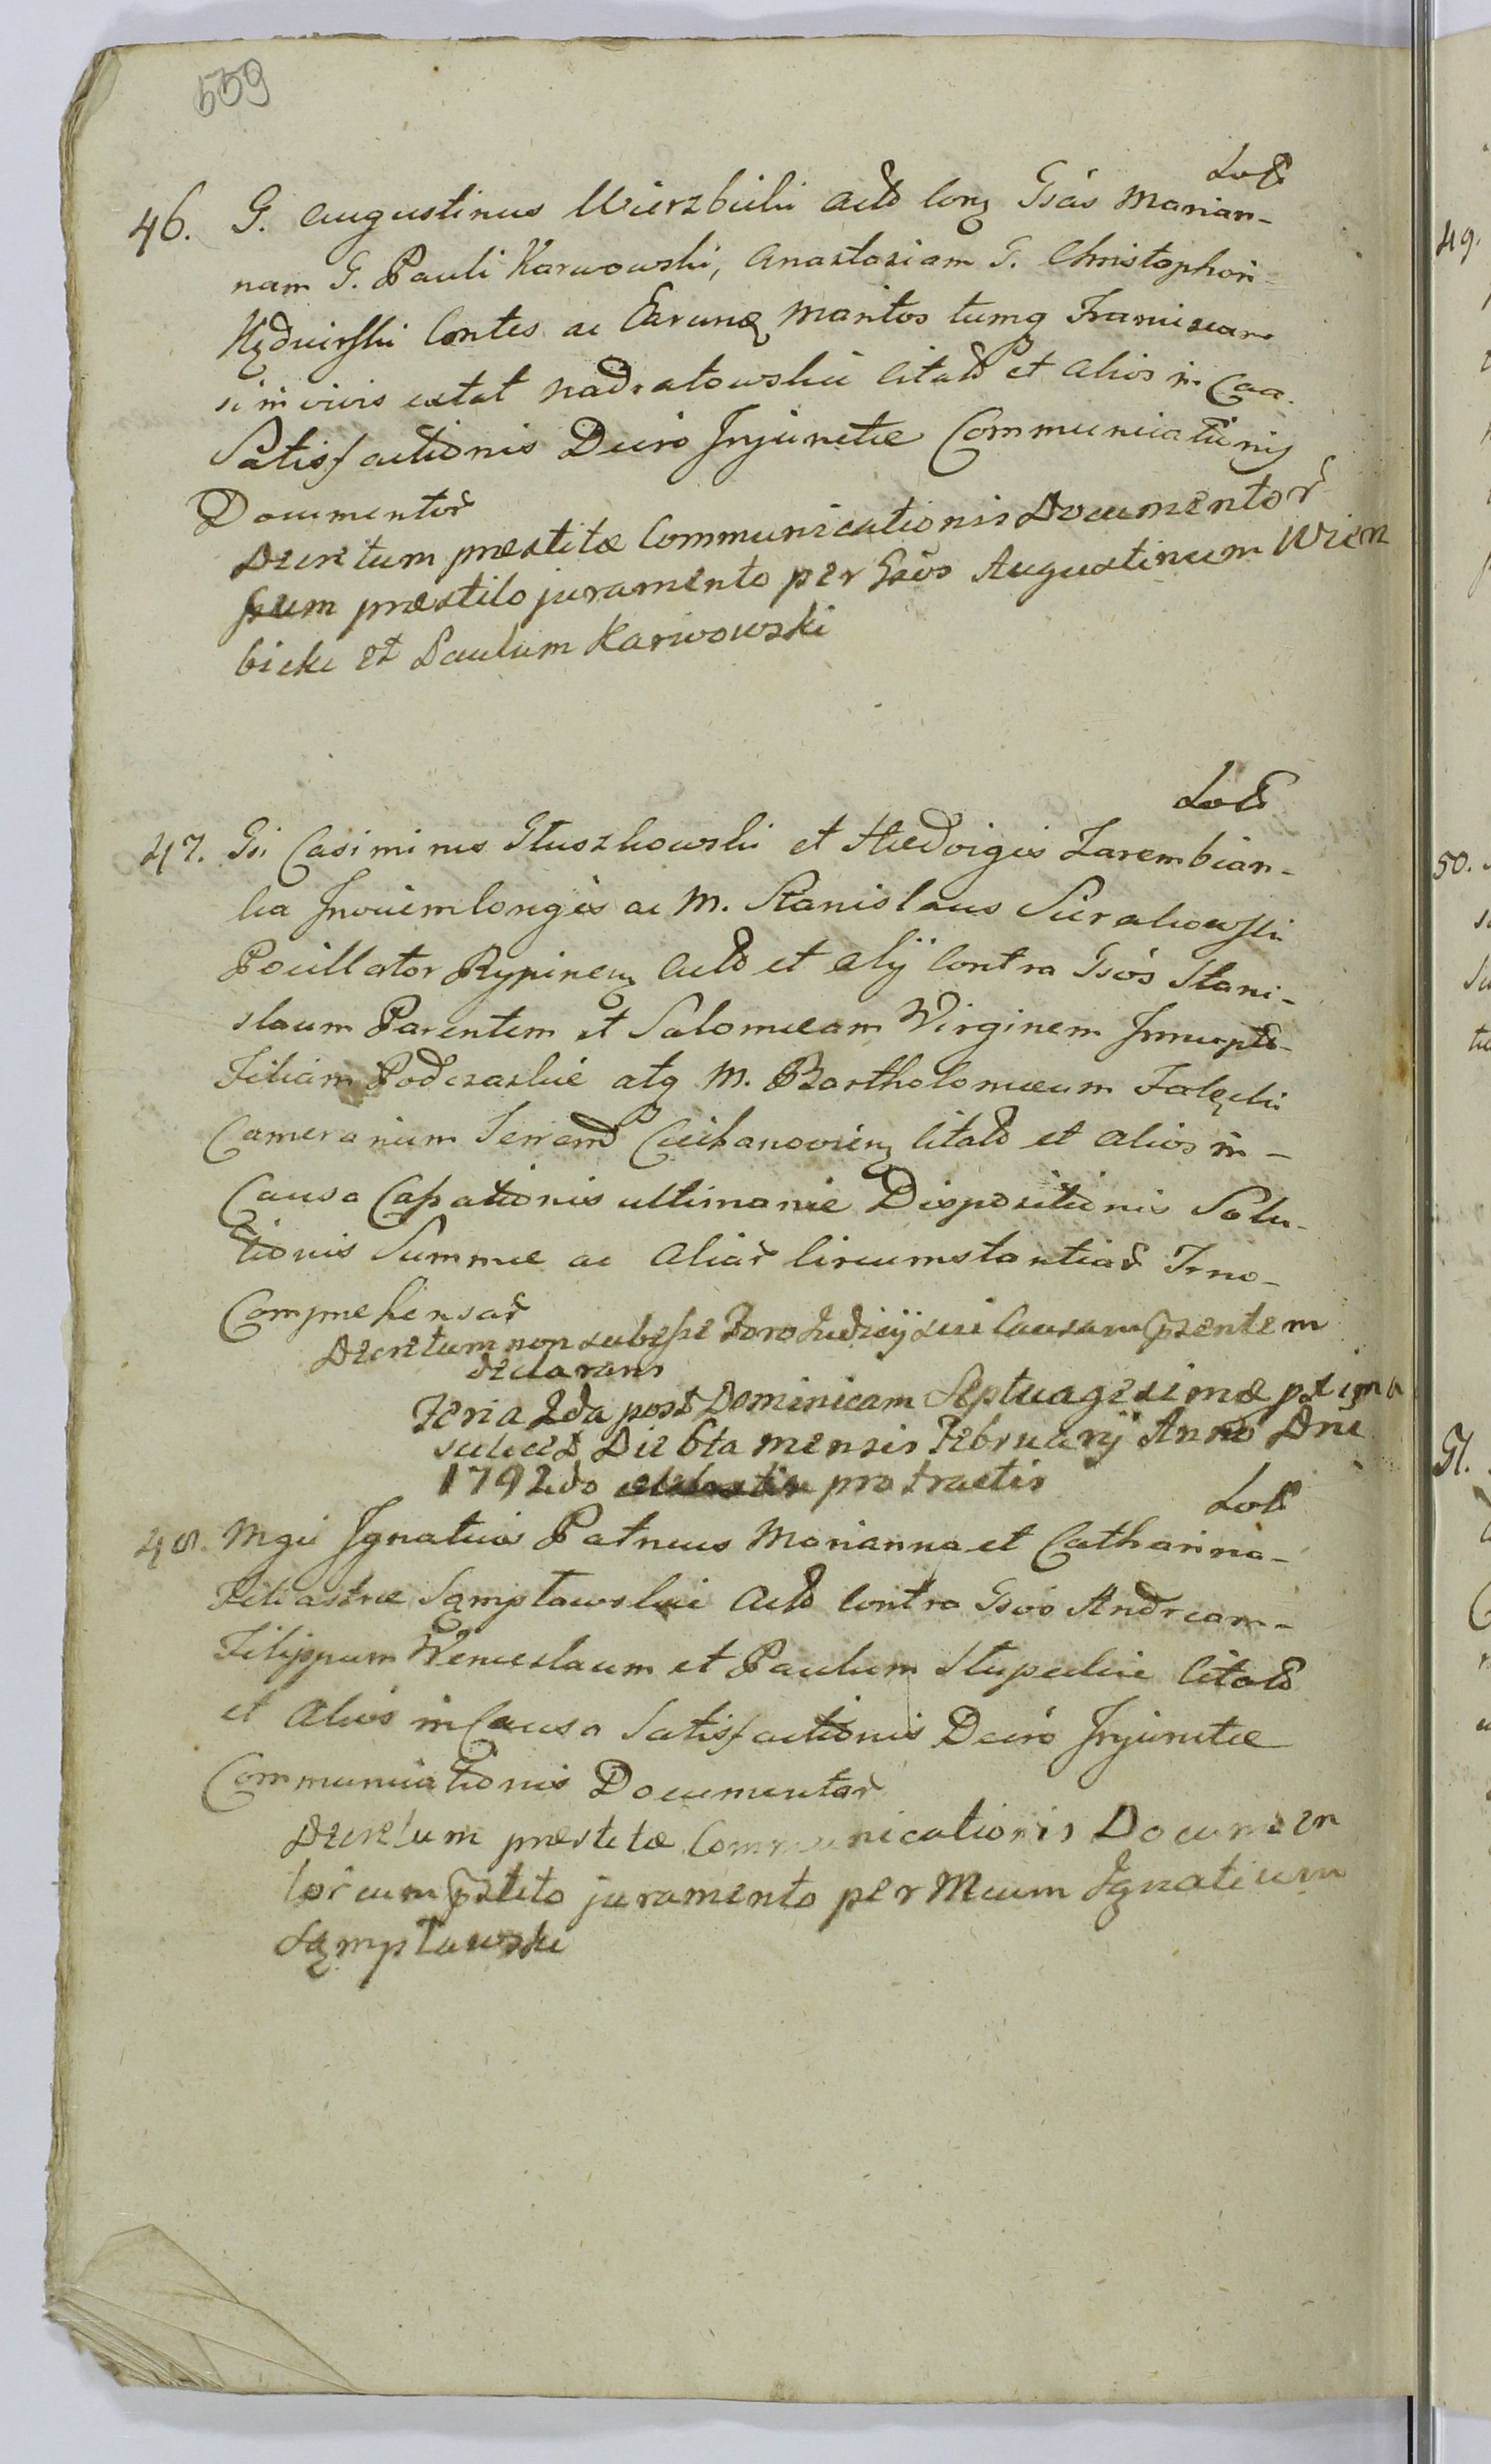 559
46. G. Augustinus Wierzbicki Actd Cong Gsas Marian-
nam G. Pauli Karwowski, Anastasiam G. Christophori
Kędzierski Contes ac Earunq Maritos tumq Franciscam
si in vivis extat Nadratowskie Citatd et Alios in Caa.
Satisfactionis Decro Injunctæ Communicationis
Documentor
Decretum præstitæ Communicationis Documentor
cum præstito juramento per Gsos Augustinum Wierz
bicki et Paulum Karwowski
47. Gsi Casimirus Głuszkowski et Hedvigis Zarembian-
ka Invicem Conges ac M. Stanislaus Sierakowski
Pocillator Rypinens Actd et Alij Contra Gsos Stani-
slaum Parentem et Salomeam Virginem Innuptd-
Filiam Podczaskie atq M. Bartholomæum Załęcki
Camerarium Terrarnd Ciechanovien Citatd et Alios in-
Causa Cassationis ultimariæ Dispositionis Solu-
tionis Summæ ac Aliar Circumstantiar Inno-
Comprehensar
Decretum non subesse Foro Judicij sui Causam psentem
declarans
Feria 2da post Dominicam Septuagesimæ pxima
scilicet Die 6ta mensis Februarij Anno Dni
1792do pro tractis
48. Mgci Ignatius Patruus Marianna et Catharina-
Filiastræ Sąmpławskie Actd Contra Gsos Andream-
Filippum Wenceslaum et Paulum Słupeckie Citatd
et Alios in Causa Satisfactionis Decro Injunctæ
Communicationis Documentor
Decretum præstitæ Communicationis Documen
tor cum pstito juramento per Mcum Ignatium
Sąmpławski
49.
50.
51.